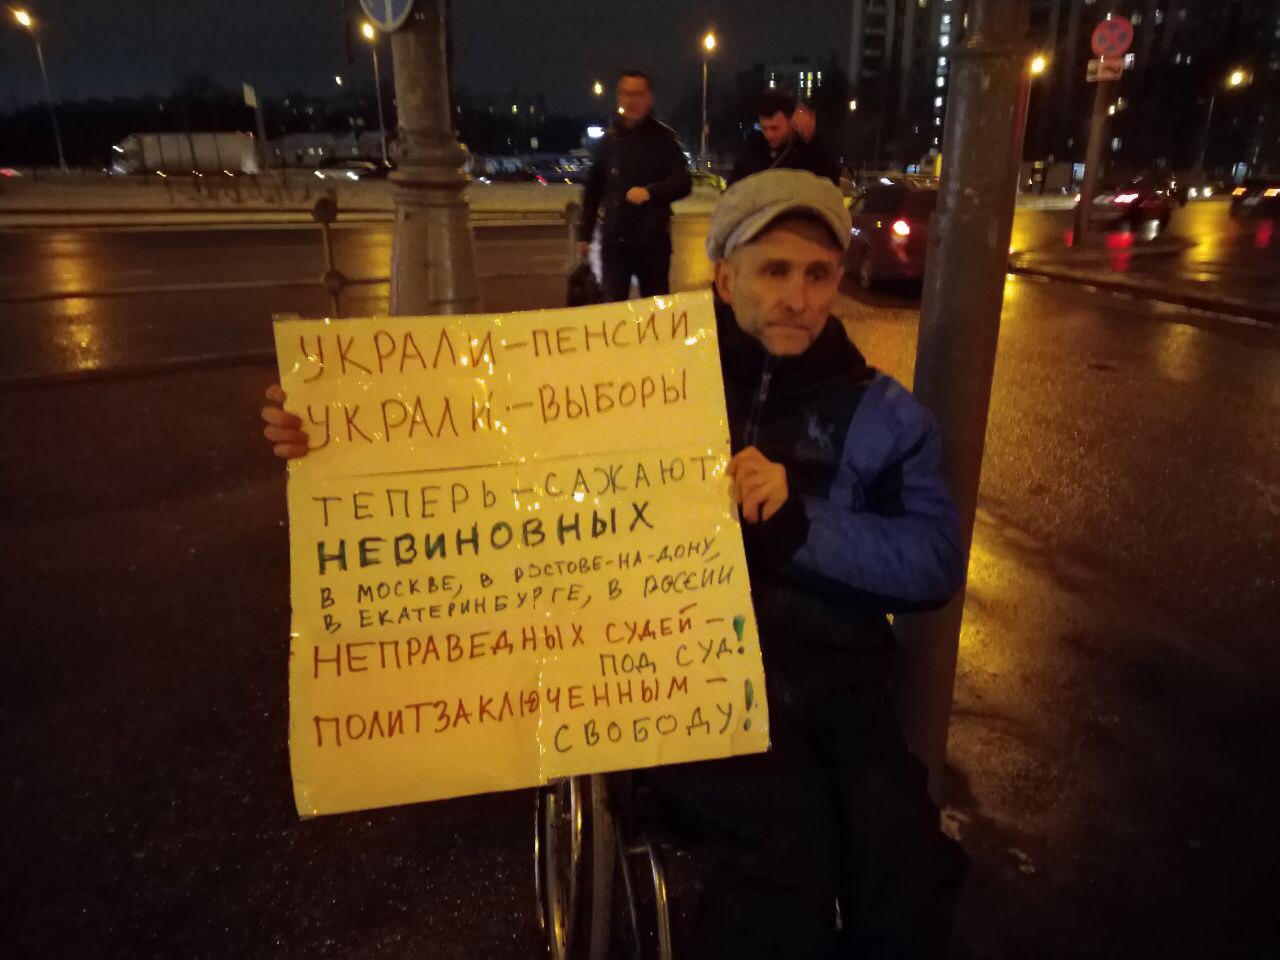 УКРАЛИ – ПЕНСИИ
УКРАЛИ – ВЫБОРЫ
ТЕПЕРЬ – САЖАЮТ
НЕВИНОВНЫХ
В МОСКВЕ, В РОСТОВЕ-НА-ДОНУ,
В ЕКАТЕРИНБУРГЕ, В РОССИИ
НЕПРАВЕДНЫХ СУДЕЙ –
ПОД СУД!
ПОЛИТЗАКЛЮЧЕННЫМ –
СВОБОДУ!